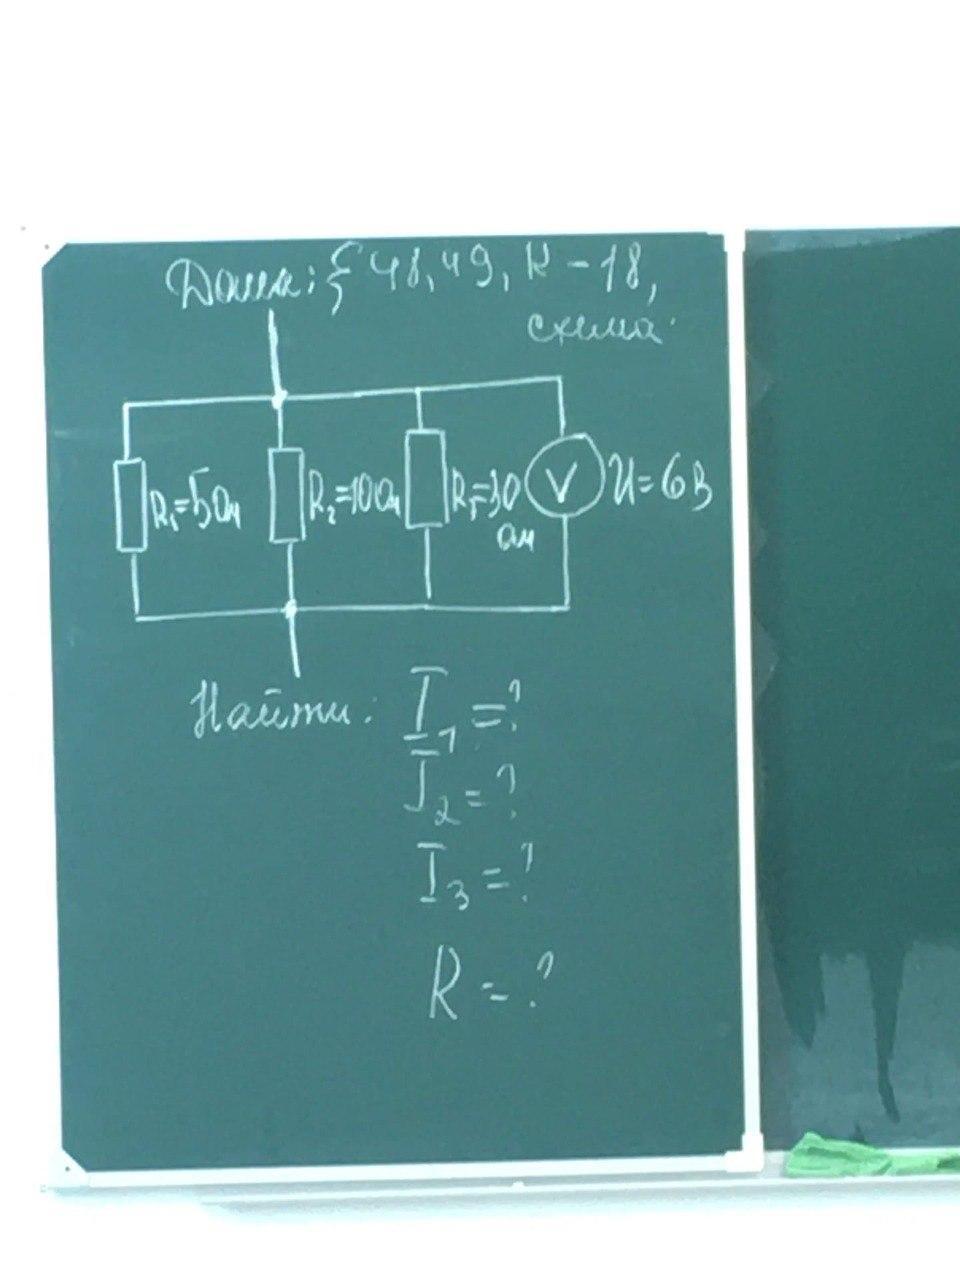 Дома: § 48, 49, К - 18,
схема.
R₁=5Ом R₂=10Ом R₃=30 Ом V U=6В
Найти: I₁=?
I₂=?
I₃=?
R=?